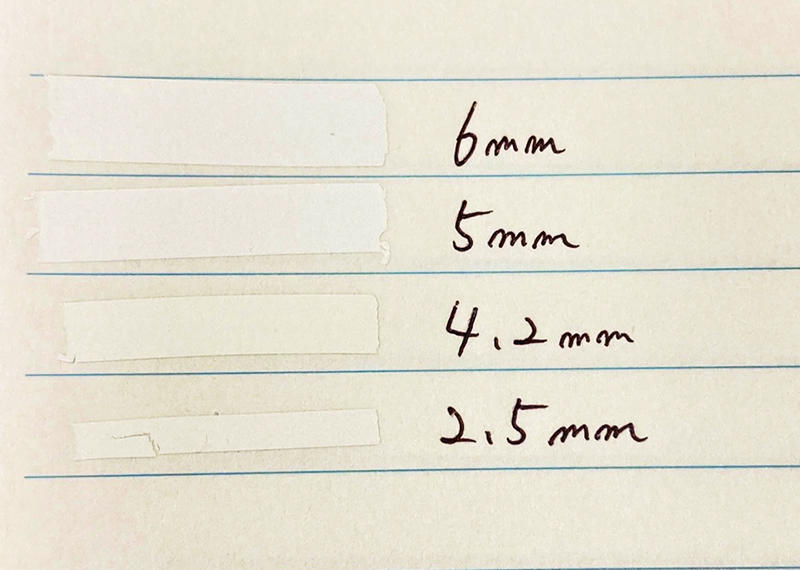 6mm
5mm
4.2mm
2.5mm